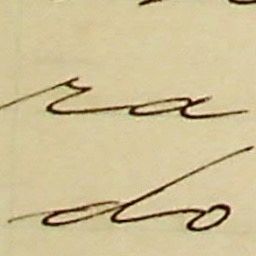 ra
do